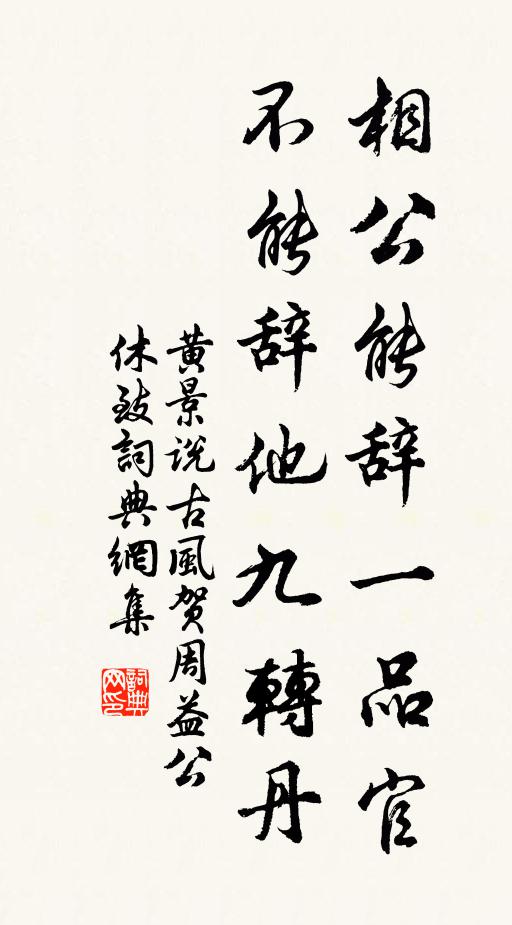 相公能辞一品官
不能辞他九轉丹
黄景说古風贺周益公
休致詞典網集
詞典
网印